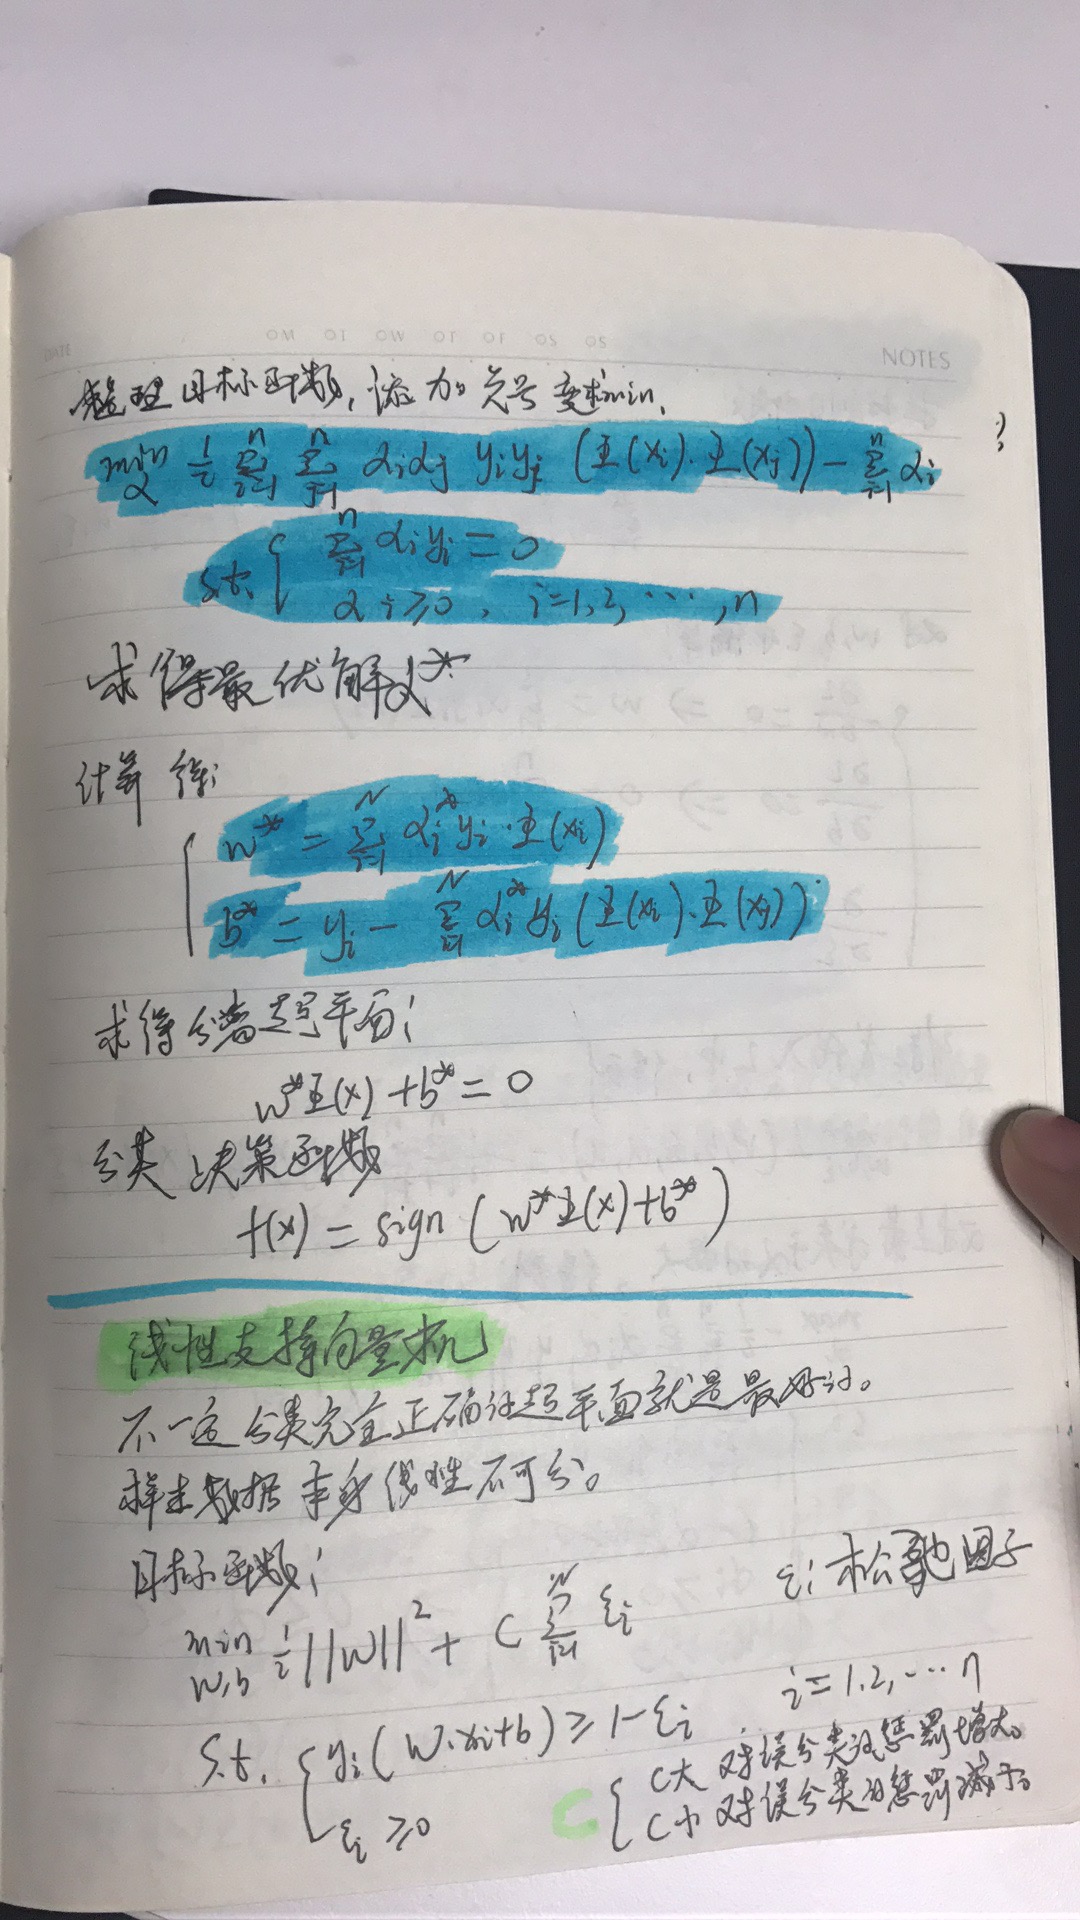 DATE MO TO WO TO TO SO SO NOTES
整理目标函数,添加负号变求min.
min α 1/2 ∑_{i=1}^{n} ∑_{j=1}^{n} αiαj yiyj (Φ(xi)·Φ(xj)) − ∑_{i=1}^{n} αi
s.t. { ∑_{i=1}^{n} αiyi = 0
αi ≥ 0, i=1,2,…,n
求得最优解α*
计算
w* = ∑_{i=1}^{N} αi* yi·Φ(xi)
b* = yi − ∑_{i=1}^{N} αi* yi (Φ(xi)·Φ(xj))
求得分离超平面:
w*Φ(x) + b* = 0
分类决策函数
f(x) = sign (w*Φ(x)+b*)
线性支持向量机
不一定分类完全正确的超平面就是最好的。
样本数据本身线性不可分。
目标函数:
min w,b 1/2 ||w||² + C ∑_{i=1}^{N} εi εi 松弛因子
s.t. { yi(w·xi+b) ≥ 1−εi i=1,2,…n
εi ≥ 0
C { C大 对误分类的惩罚增大。
C小 对误分类的惩罚减小。